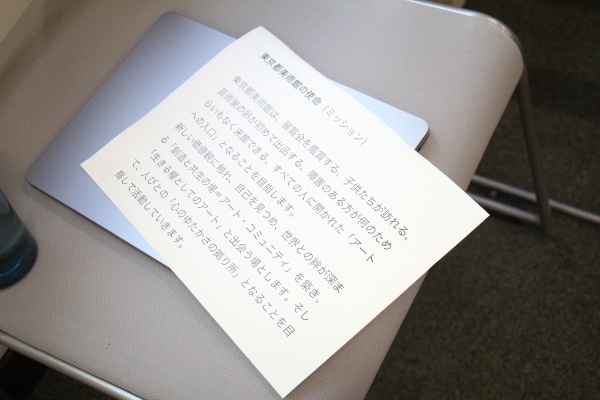 東京都美術館の使命（ミッション）
東京都美術館は、展覧会を鑑賞する、子供たちが訪れる、
芸術家の卵が初めて出品する、障害のある方が何のため
らいもなく来館できる、すべての人に開かれた「アート
への入口」となることを目指します。
新しい価値観に触れ、自己を見つめ、世界との絆が深ま
る「創造と共生の場＝アート・コミュニティ」を築き、
「生きる糧としてのアート」と出会う場とします。そし
て、人びとの「心のゆたかさの拠り所」となることを目
指して活動していきます。